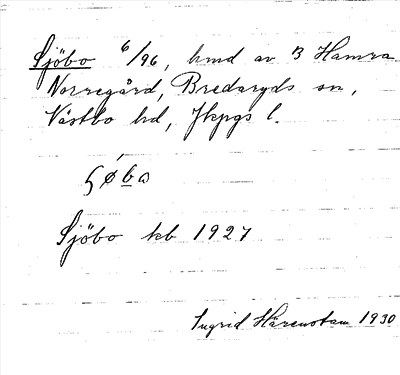 Sjöbo 6/96, hmd av 3 Hamra
Norregård, Bredaryds sn,
Västbo hd, Jkpgs l.
Sjöbo kb 1927
Ingrid Härenstam 1930